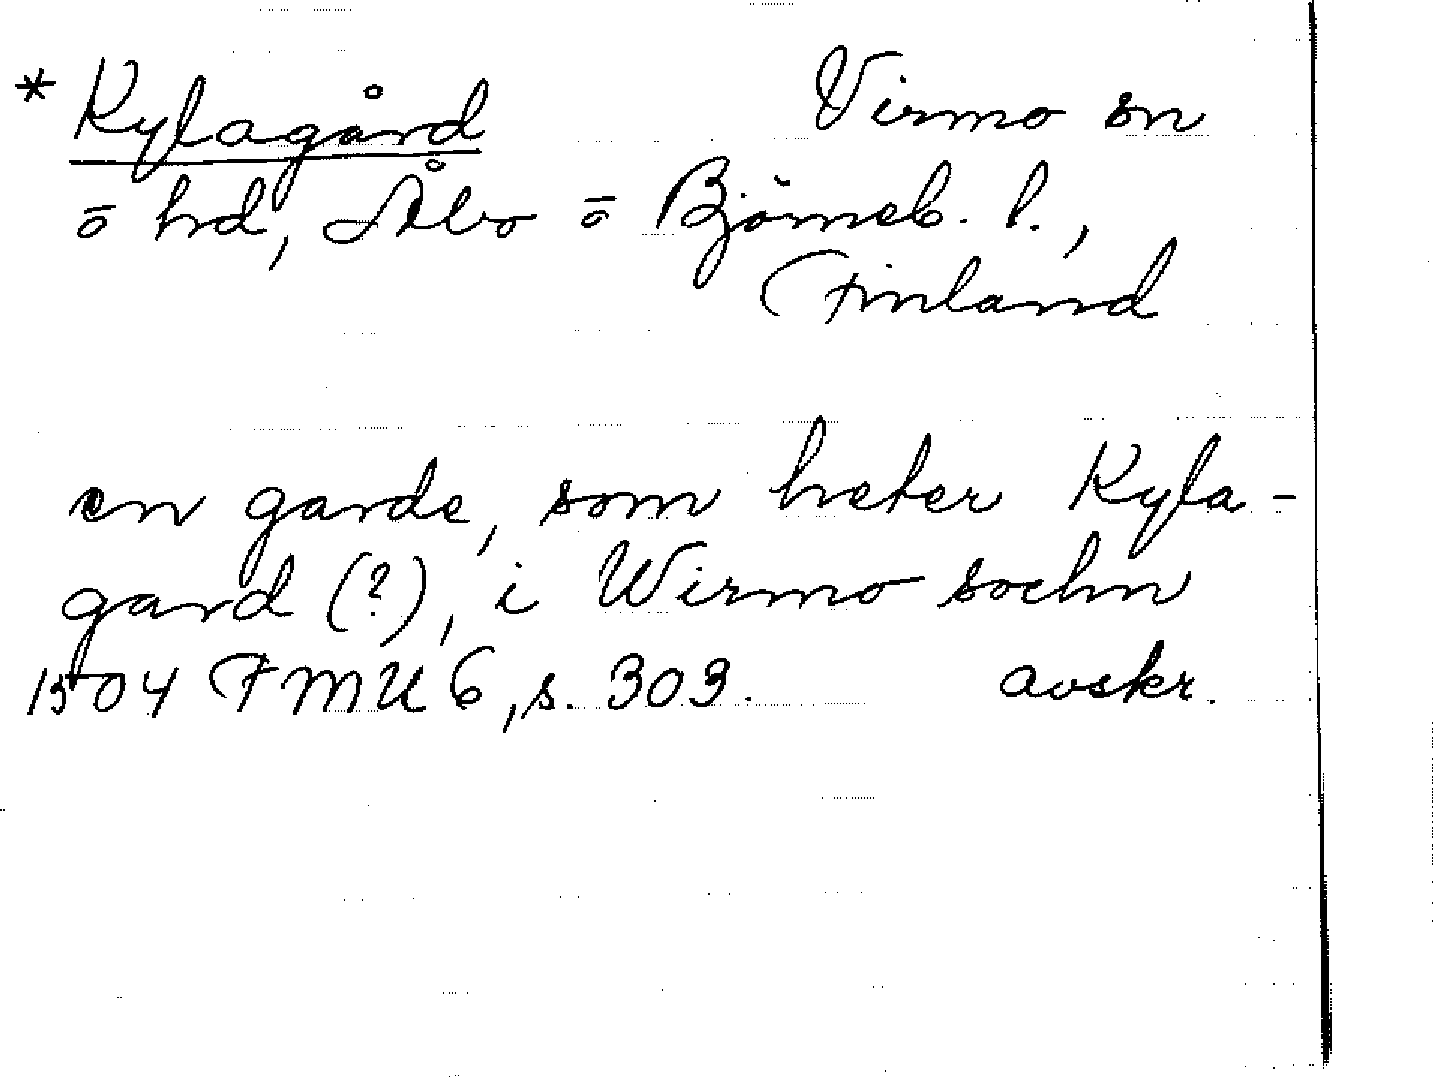 * Kylagård Virmo sn
ō hd, Åbo ō Björneb. l.,
Finland
en garde, som heter Kyla-
gard (?), i Wirmo sochn
1504 FMU 6, s. 303. avskr.